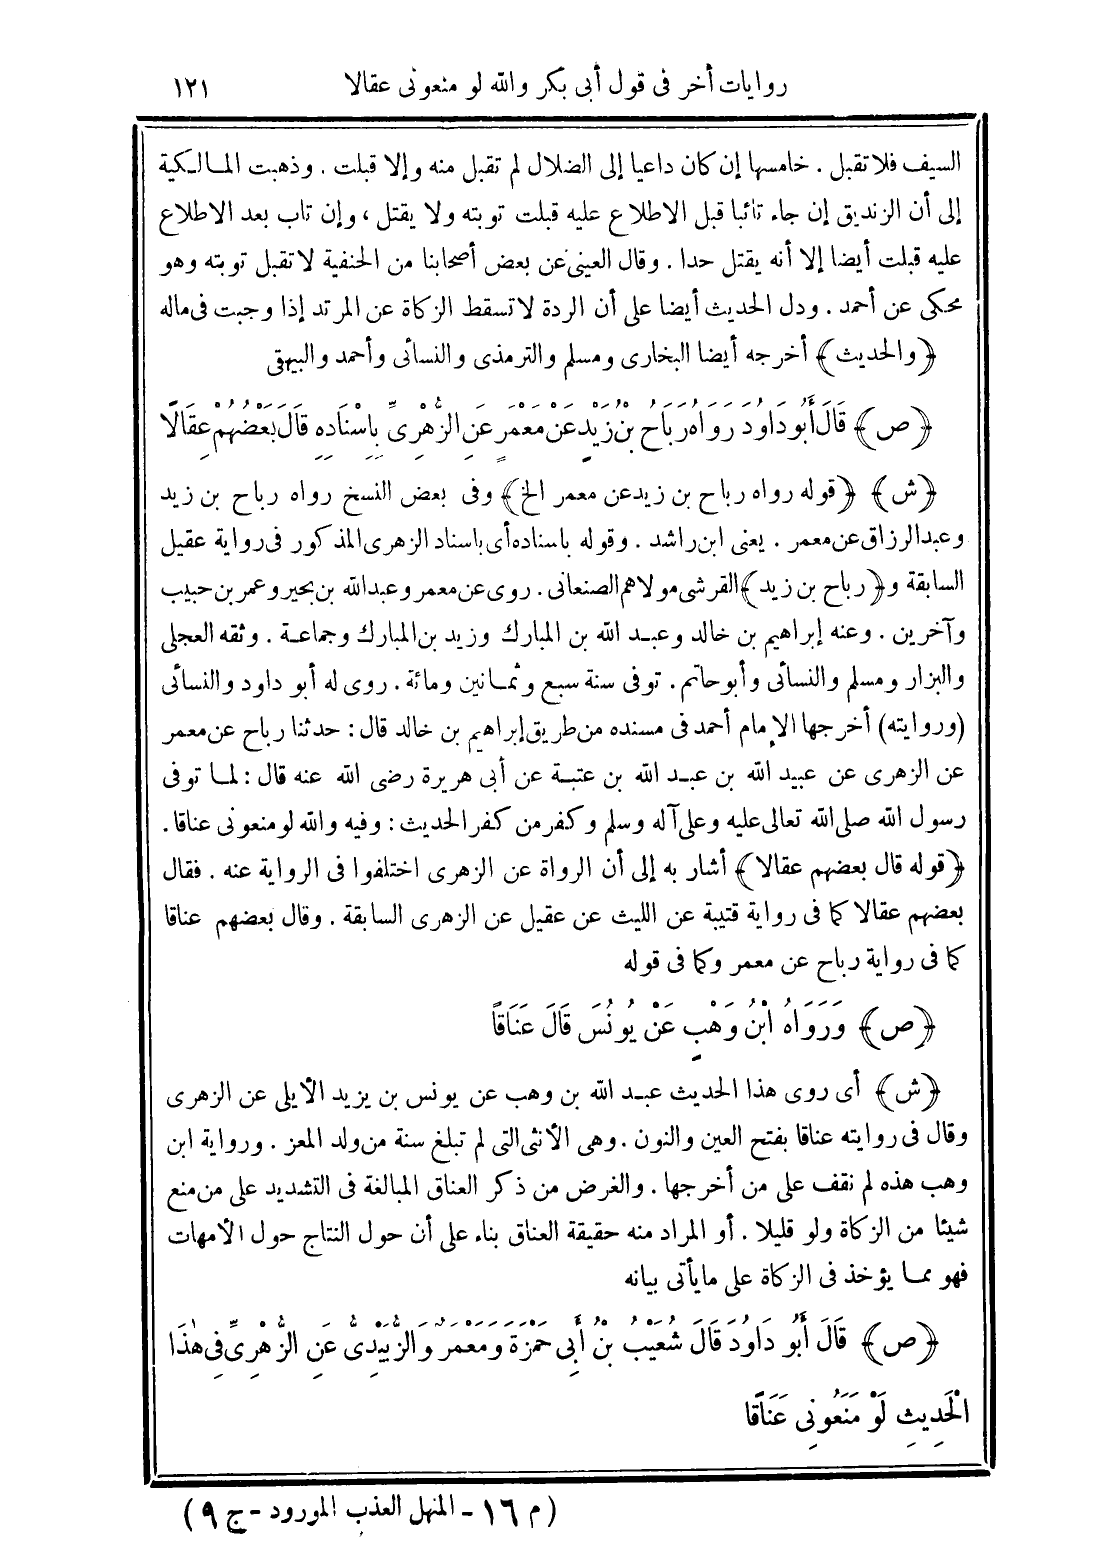 روايات أخر فى قول أبى بكر والله لو منعونى عقالا ١٢١
السيف فلا تقبل . خامسها إن كان داعيا إلى الضلال لم تقبل منه وإلا قبلت . وذهبت المالكية
إلى أن الزنديق إن جاء تائبا قبل الاطلاع عليه قبلت توبته ولا يقتل ، وإن تاب بعد الاطلاع
عليه قبلت أيضا إلا أنه يقتل حدا . وقال العينى عن بعض أصحابنا من الحنفية لا تقبل توبته وهو
محكى عن أحمد . ودل الحديث أيضا على أن الردة لا تسقط الزكاة عن المرتد إذا وجبت فى ماله
﴿والحديث﴾ أخرجه أيضا البخارى ومسلم والترمذى والنسائى وأحمد والبيهقى
﴿ص﴾ قَالَ أَبُو دَاوُدَ رَوَاهُ رَبَاحُ بْنُ زَيْدٍ عَنْ مَعْمَرٍ عَنِ الزُّهْرِىِّ بِإِسْنَادِهِ قَالَ بَعْضُهُمْ عِقَالًا
﴿ش﴾ ﴿قوله رواه رباح بن زيد عن معمر الخ﴾ وفى بعض النسخ رواه رباح بن زيد
وعبد الرزاق عن معمر . يعنى ابن راشد . وقوله باسناده أى باسناد الزهرى المذكور فى رواية عقيل
السابقة و﴿رباح بن زيد﴾ القرشى مولاهم الصنعانى . روى عن معمر وعبد الله بن بحير وعمر بن حبيب
وآخرين . وعنه إبراهيم بن خالد وعبد الله بن المبارك وزيد بن المبارك وجماعة . وثقه العجلى
والبزار ومسلم والنسائى وأبو حاتم . توفى سنة سبع وثمانين ومائة . روى له أبو داود والنسائى
(وروايته) أخرجها الإمام أحمد فى مسنده من طريق إبراهيم بن خالد قال : حدثنا رباح عن معمر
عن الزهرى عن عبيد الله بن عبد الله بن عتبة عن أبى هريرة رضى الله عنه قال : لما توفى
رسول الله صلى الله تعالى عليه وعلى آله وسلم وكفر من كفر الحديث : وفيه والله لو منعونى عناقا .
﴿قوله قال بعضهم عقالا﴾ أشار به إلى أن الرواة عن الزهرى اختلفوا فى الرواية عنه . فقال
بعضهم عقالا كما فى رواية قتيبة عن الليث عن عقيل عن الزهرى السابقة . وقال بعضهم عناقا
كما فى رواية رباح عن معمر وكما فى قوله
﴿ص﴾ وَرَوَاهُ ابْنُ وَهْبٍ عَنْ يُونُسَ قَالَ عَنَاقًا
﴿ش﴾ أى روى هذا الحديث عبد الله بن وهب عن يونس بن يزيد الأيلى عن الزهرى
وقال فى روايته عناقا بفتح العين والنون . وهى الأنثى التى لم تبلغ سنة من ولد المعز . ورواية ابن
وهب هذه لم نقف على من أخرجها . والغرض من ذكر العناق المبالغة فى التشديد على من منع
شيئا من الزكاة ولو قليلا . أو المراد منه حقيقة العناق بناء على أن حول النتاج حول الأمهات
فهو مما يؤخذ فى الزكاة على ما يأتى بيانه
﴿ص﴾ قَالَ أَبُو دَاوُدَ قَالَ شُعَيْبُ بْنُ أَبِى حَمْزَةَ وَمَعْمَرٌ وَالزُّبَيْدِىُّ عَنِ الزُّهْرِىِّ فِى هٰذَا
الْحَدِيثِ لَوْ مَنَعُونِى عَنَاقًا
(م ١٦ - المنهل العذب المورود - ج ٩)